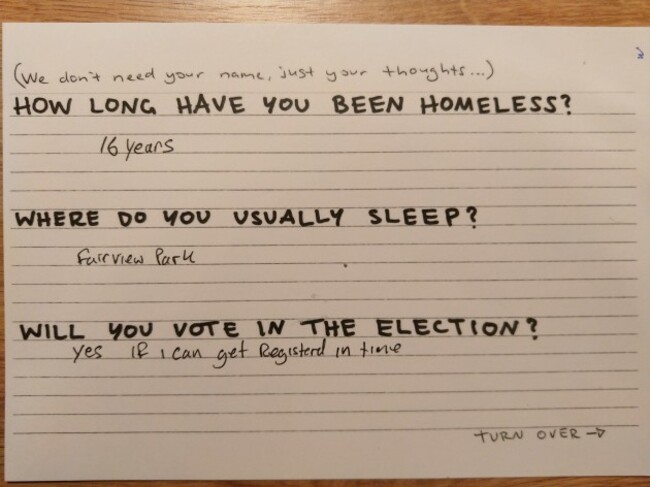 (We don't need your name, just your thoughts...)
HOW LONG HAVE YOU BEEN HOMELESS?
16 years
WHERE DO YOU USUALLY SLEEP?
Fairview Park
WILL YOU VOTE IN THE ELECTION?
yes if i can get Registerd in time
TURN OVER →